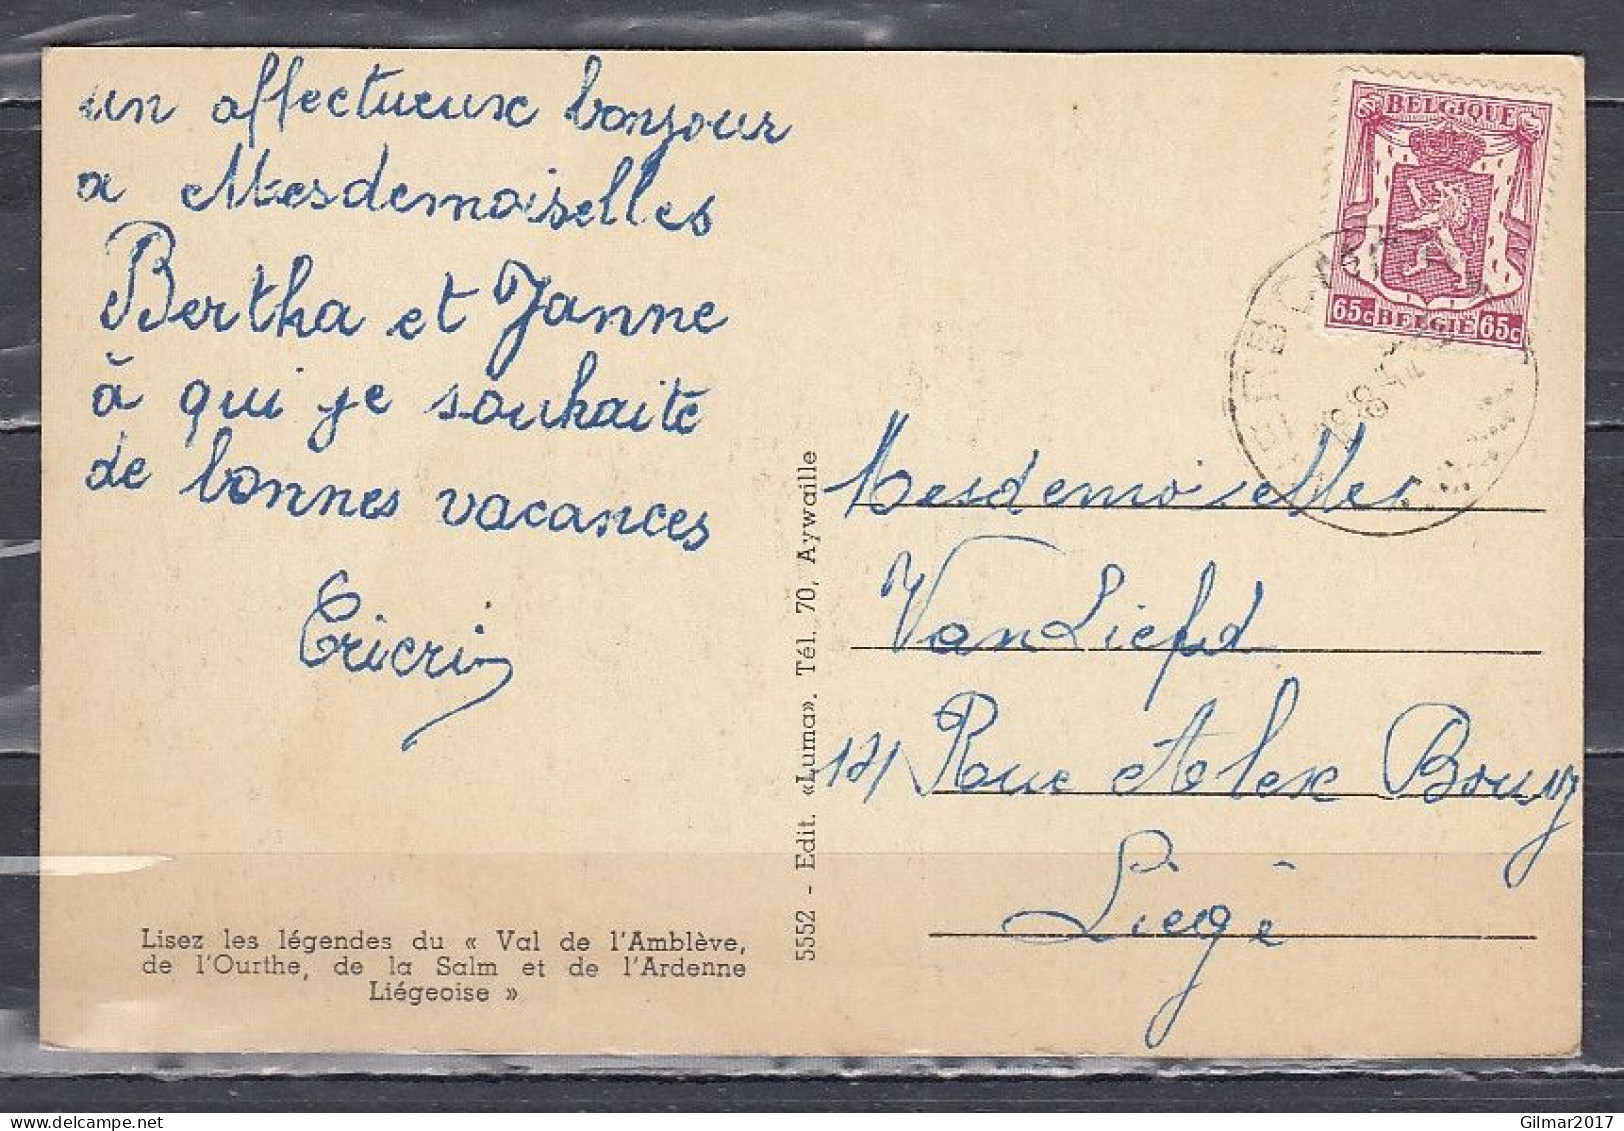 un affectueux bonjour
a Mesdemoiselles
Bertha et Janne
à qui je souhaite
de bonnes vacances
Cricri
Lisez les légendes du « Val de l'Amblève,
de l'Ourthe, de la Salm et de l'Ardenne
Liégeoise »
5552 - Edit. «Luma». Tél. 70, Aywaille
BELGIQUE
65c BELGIE 65c
Mesdemoiselles
Van Liefd
121 Rue Alex Bouvy
Liegé
Gilmar2017